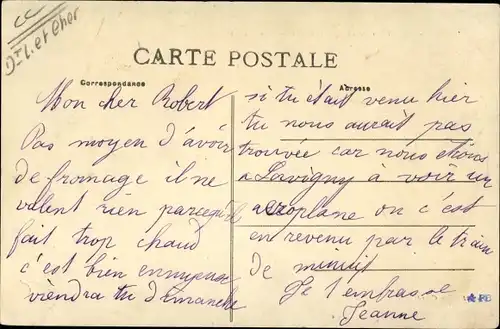 Dt L. et Cher
CARTE POSTALE
Correspondance
Adresse
Mon cher Robert
Pas moyen d'avoir
de fromage il ne
valent rien parcequ'il
fait trop chaud
c'est bien ennuyeux
viendra tu dimanche
si tu était venu hier
tu nous aurait pas
trouvée car nous étions
a Savigny à voir un
aéroplane on c'est
en revenu par le train
de minuit
Je t'embrasse
Jeanne